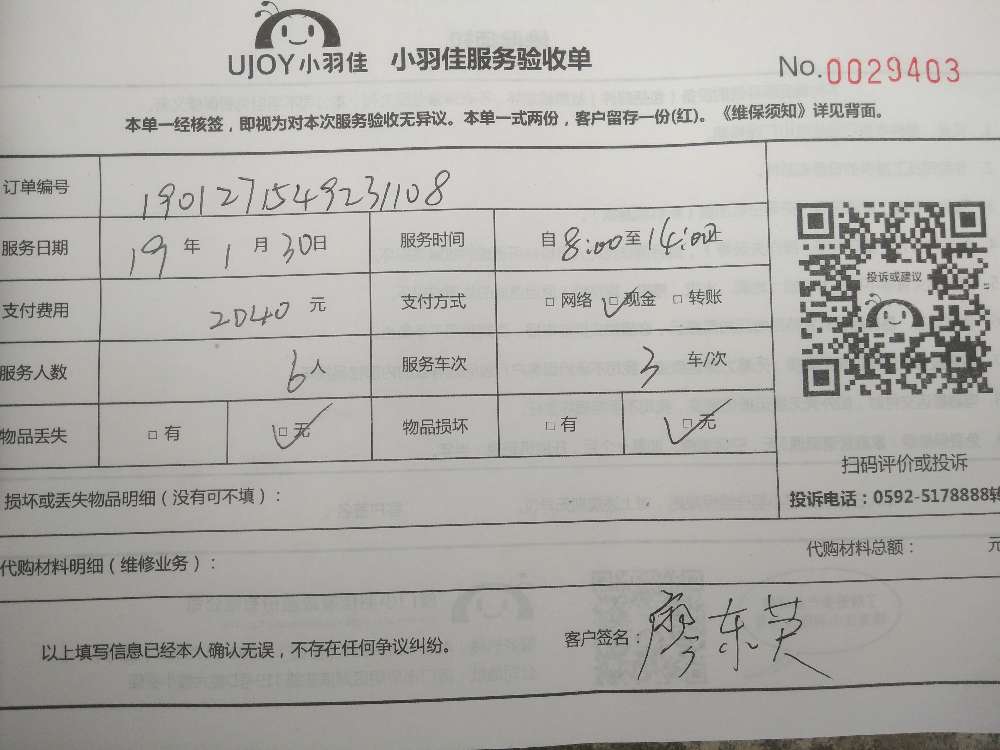 UJOY小羽佳 小羽佳服务验收单 No.0029403
本单一经核签，即视为对本次服务验收无异议。本单一式两份，客户留存一份(红)。《维保须知》详见背面。
订单编号 1901271549231108
服务日期 19 年 1 月 30日 服务时间 自 8:00 至 14:00 止
支付费用 2040 元 支付方式 □ 网络 □ 现金 □ 转账
投诉或建议
服务人数 6 人 服务车次 3 车/次
物品丢失 □ 有 □ 无 物品损坏 □ 有 □ 无
扫码评价或投诉
损坏或丢失物品明细（没有可不填）： 投诉电话：0592-5178888转
代购材料明细（维修业务）： 代购材料总额： 元
以上填写信息已经本人确认无误，不存在任何争议纠纷。 客户签名：廖东英